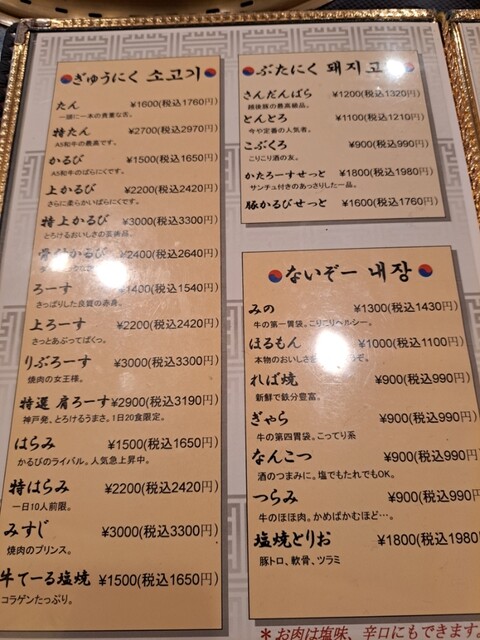 ぎゅうにく 소고기
たん ¥1600(税込1760円)
一頭に一本の貴重な舌。
特たん ¥2700(税込2970円)
A5和牛の最高です。
かるび ¥1500(税込1650円)
A5和牛のばらにくです。
上かるび ¥2200(税込2420円)
さらに柔らかいばらにくです。
特上かるび ¥3000(税込3300円)
とろけるおいしさの芸術品。
かるび ¥2400(税込2640円)
ろーす ¥1400(税込1540円)
さっぱりした良質の赤身。
上ろーす ¥2200(税込2420円)
さっとあぶってぱくっ。
りぶろーす ¥3000(税込3300円)
焼肉の女王様。
特選 肩ろーす ¥2900(税込3190円)
神戸発。とろけるうまさ。1日20食限定。
はらみ ¥1500(税込1650円)
かるびのライバル。人気急上昇中。
特はらみ ¥2200(税込2420円)
一日10人前限。
みすじ ¥3000(税込3300円)
焼肉のプリンス。
牛てーる塩焼 ¥1500(税込1650円)
コラゲンたっぷり。
ぶたにく 돼지고
さんだんばら ¥1200(税込1320円)
越後豚の最高級品。
とんとろ ¥1100(税込1210円)
今や定番の人気者。
こぶくろ ¥900(税込990円)
こりこり酒の友。
かたろーすせっと ¥1800(税込1980円)
サンチュ付きのあっさりした一品。
豚かるびせっと ¥1600(税込1760円)
ないぞー 내장
みの ¥1300(税込1430円)
牛の第一胃袋。こりこりヘルシー。
ほるもん ¥1000(税込1100円)
本物のおいしさ
れば焼 ¥900(税込990円)
新鮮で鉄分豊富。
ぎゃら ¥900(税込990円)
牛の第四胃袋。こってり系
なんこつ ¥900(税込990円)
酒のつまみに。塩でもたれでもOK。
つらみ ¥900(税込990円)
牛のほほ肉。かめばかむほど…。
塩焼とりお ¥1800(税込1980円
豚トロ、軟骨、ツラミ
*お肉は塩味、辛口にもできます。